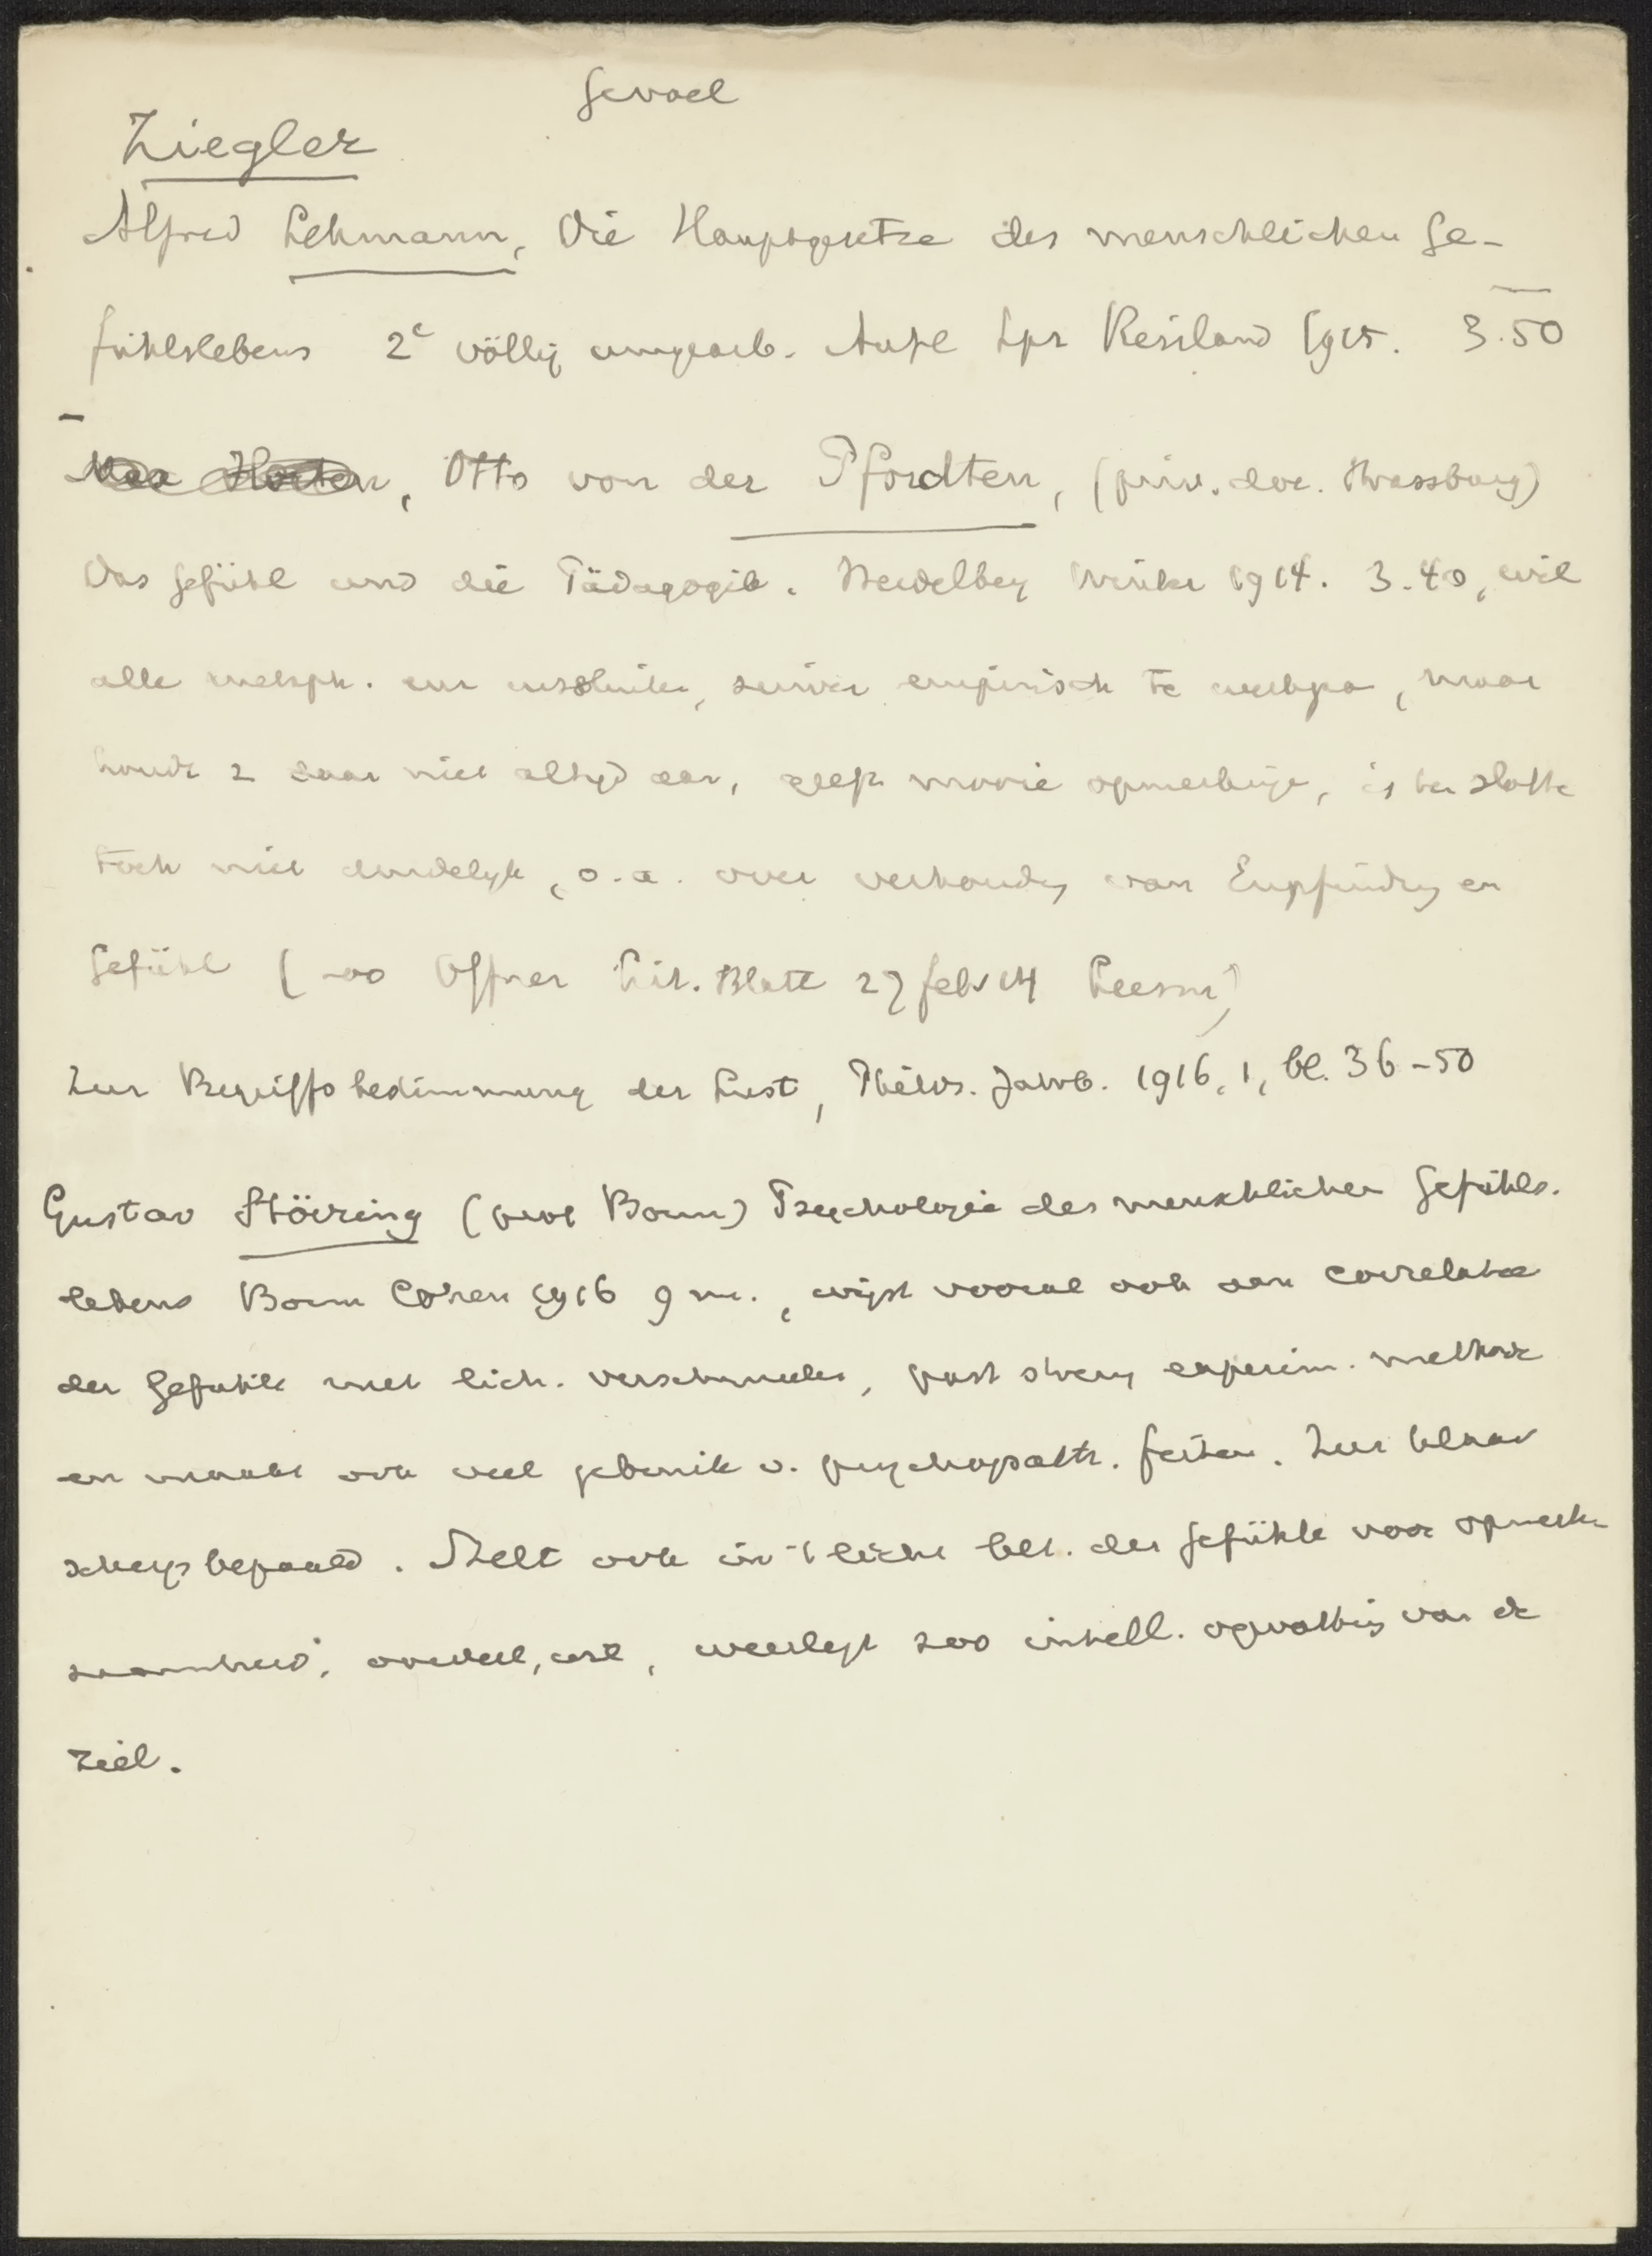 Gevoel
Ziegler
Alfred Lehmann, Die Hauptgesetze des menschlichen Ge-
fühlslebens 2e völlig umgearb. Aufl Lpz Reisland 1915. 3.50
Max Horten, Otto von der Pfordten, (priv. doc. Strassburg)
Das Gefühl und die Pädagogik. Heidelberg Winter 1914. 3.40, wil
alle metaph. en uitsluiten, zuiver empirisch te werk gaan, maar
houdt z daar niet altijd aan, geeft mooie opmerkingen, is ten slotte
toch niet duidelyk, o.a. over verhouding van Empfindung en
Gefühl (zoo Offner Lit. Blatt 27 febr 14 Leesm)
Zur Begriffsbestimmung der Lust, Philos. Jahrb. 1916, 1, bl. 36-50
Gustav Störring (prof Bonn) Psychologie des menschlichen Gefühls-
lebens Bonn Cohen 1916 9 m., wijst vooral ook aan correlatie
der Gefühle met lich. verschijnselen, past streng experim. methode
en maakt ook veel gebruik v. psychopath. feiten. Zeer klaar
scherp bepaald. Stelt ook in 't licht bet. der Gefühle voor opmerk-
zaamheid, oordeel, wil, weerlegt zoo intell. opvatting van de
ziel.